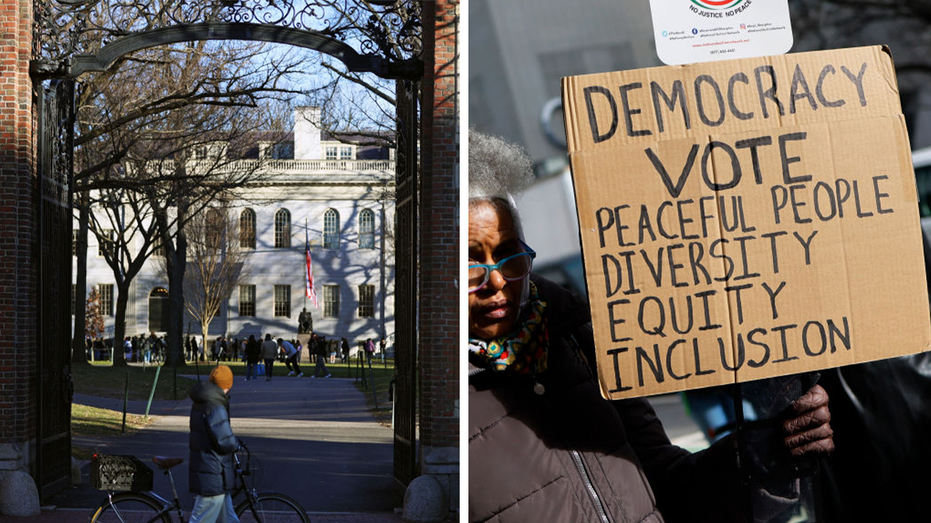 NO JUSTICE NO PEACE
DEMOCRACY
VOTE
PEACEFUL PEOPLE
DIVERSITY
EQUITY
INCLUSION